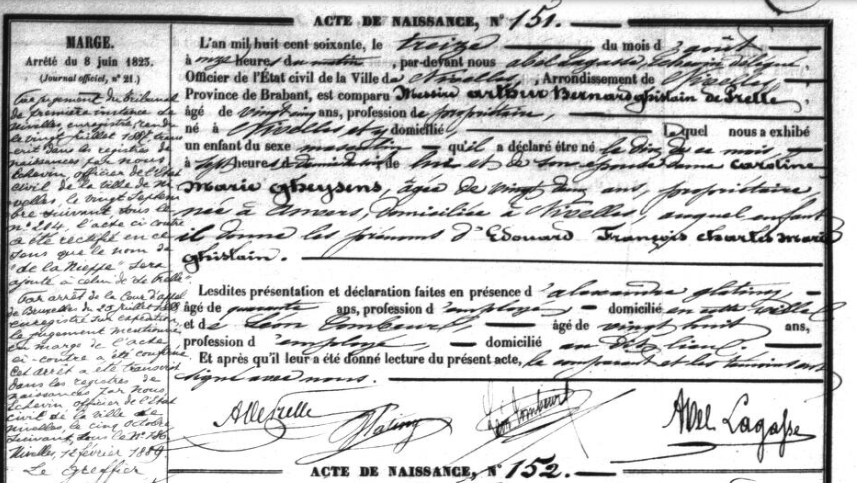 ACTE DE NAISSANCE, N° 151.
MARGE.
Arrêté du 8 juin 1823.
(Journal officiel, n° 21.)
Par jugement du tribunal
de première instance de
Nivelles, enregistré, rendu
le vingt juillet trans
crit dans les registres de
naissances par nous
Echevin, officier de l'Etat
civil de la ville de Ni
velles, le vingt Septem
bre suivant sous le
n° 214, l'acte ci contre
a été rectifié en ce
sens que le nom de
"de la Nieppe" sera
ajouté à celui de "de Prelle"
Par arrêt de la Cour d'appel
de Bruxelles du juillet
enregistré sur expédition
le jugement mentionné
en marge de l'acte
ci-contre a été confirmé
Cet arrêt a été transcrit
dans les registres de
naissances par nous
Echevin officier de l'état
civil de la ville de
Nivelles, le cinq octobre
suivant, sous le N°
Nivelles, février 1889.
Le greffier
L'an mil huit cent soixante, le treize du mois d'août
à onze heures du matin, par-devant nous abel Lagasse, Echevin délégué,
Officier de l'État civil de la Ville de Nivelles, Arrondissement de Nivelles,
Province de Brabant, est comparu Messire arthur Bernard ghislain de Prelle,
âgé de vingt cinq ans, profession de propriétaire,
né à Nivelles et y domicilié, Lequel nous a exhibé
un enfant du sexe masculin qu'il a déclaré être né le dix de ce mois,
à sept heures de lui et de son epouse dame Caroline
Marie gheysens, âgée de vingt deux ans, propriétaire
née à Anvers, domiciliée à Nivelles, auquel enfant
il donne les prénoms d'Edouard François Charles Marie
ghislain.
Lesdites présentation et déclaration faites en présence d'alexandre glatiny,
âgé de quarante ans, profession d'employé, domicilié en cette ville
et de Léon Tombeur, âgé de vingt huit ans,
profession d'employé, domicilié au dit lieu.
Et après qu'il leur a été donné lecture du présent acte, le comparant et les témoins ont
signé avec nous.
Léon Tombeur Abel Lagasse
ACTE DE NAISSANCE, N° 152.